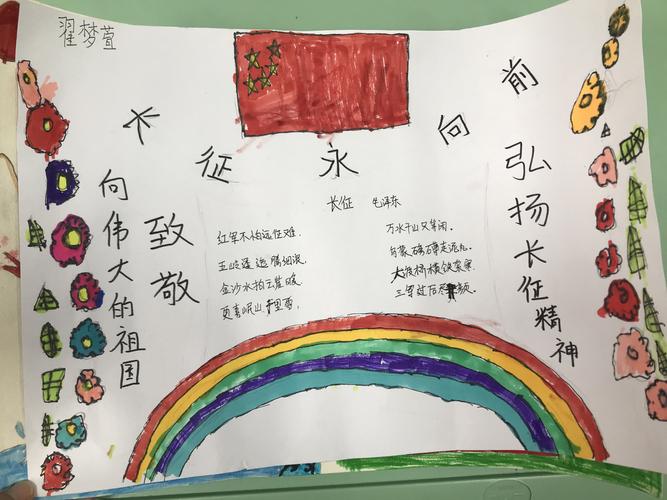 翟梦萱
长征永向前
向伟大的祖国
致敬
弘扬长征精神
长征 毛泽东
红军不怕远征难.
万水千山只等闲.
五岭逶迤腾细浪.
乌蒙磅礴走泥丸.
金沙水拍云崖暖
大渡桥横铁索寒.
更喜岷山千里雪,
三军过后尽颜.